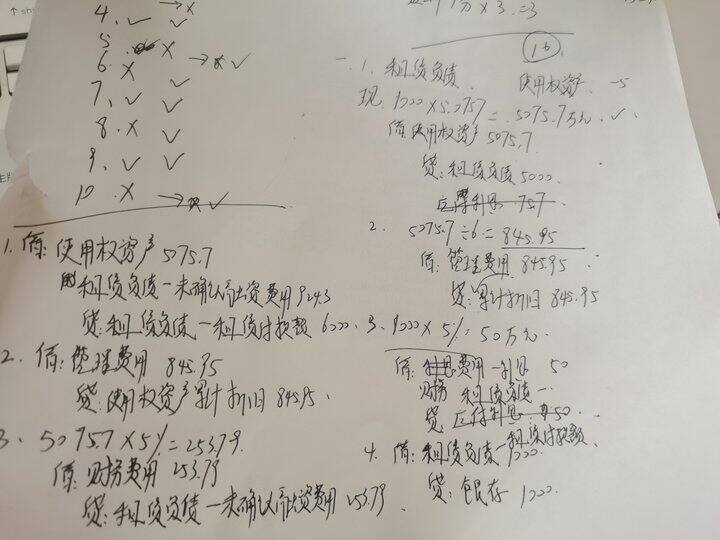 4. ✓ ✓
5. × ×
6. × → × ✓
7. ✓ ✓
8. × ✓
9. ✓ ✓
10. × → × ✓
1分 × 3 = 3
16.
一. 1. 租赁负债 使用权资产 -5
现 1000 × 5.0757 = 5075.7万元. ✓
借:使用权资产 5075.7
贷:租赁负债 5000.
应付利息 75.7
2. 5075.7 ÷ 6 = 845.95
借:管理费用 845.95
贷:累计折旧 845.95
3. 1000 × 5% = 50万元.
借:利息费用-利息 50
财务 租赁负债-
贷 应付利息 50.
4. 借:租赁负债-租赁付款额 1000.
贷:银存 1000.
1. 借:使用权资产 5075.7
租赁负债-未确认融资费用 924.3
贷:租赁负债-租赁付款额 6000.
2. 借:管理费用 845.95
贷:使用权资产累计折旧 845.95.
3. 5075.7 × 5% = 253.79.
借:财务费用 253.79
贷:租赁负债-未确认融资费用 253.79.